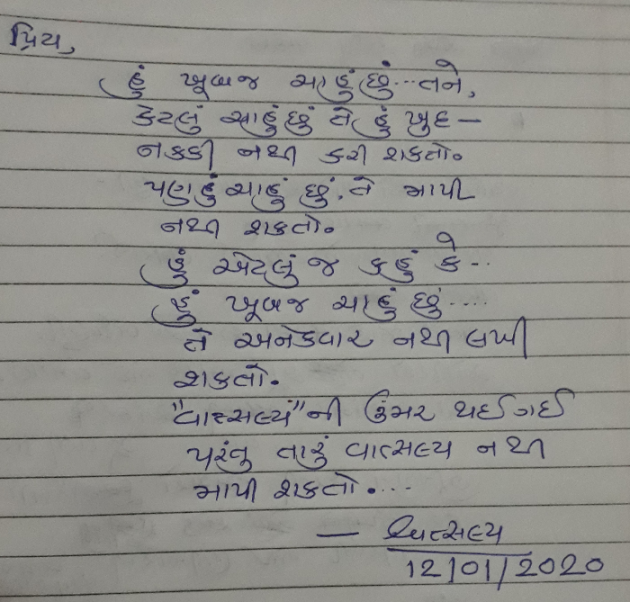 પ્રિય,
હું ખૂબજ ચાહું છું...તને,
કેટલું ચાહું છું તે હું ખુદ –
નકકી નથી કરી શકતો.
પણ હું ચાહું છું. તે માપી
નથી શકતો.
હું એટલું જ કહું કે...
હું ખૂબજ ચાહું છું....
તે અનેકવાર નથી લખી
શકતો.
"વાત્સલ્ય"ની ઉંમર થઈ ગઈ
પરંતુ તારું વાત્સલ્ય નથી
માપી શકતો....
– વાત્સલ્ય
12/01/2020